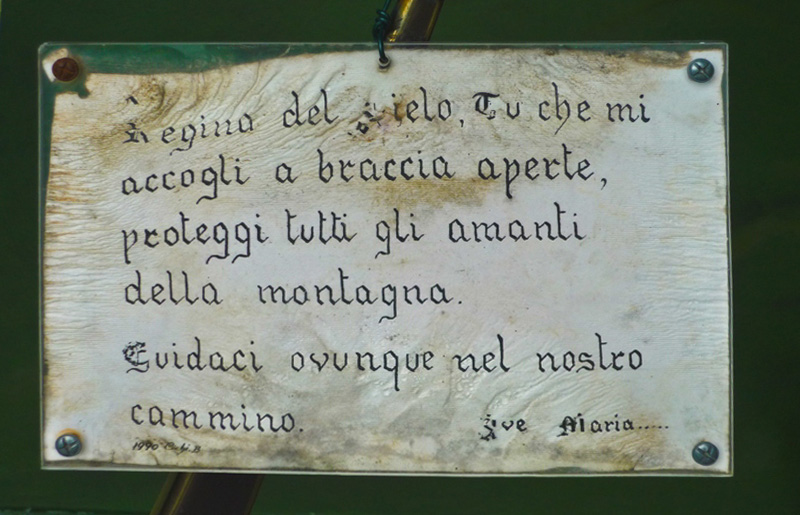 Regina del Cielo, Tu che mi
accogli a braccia aperte,
proteggi tutti gli amanti
della montagna.
Guidaci ovunque nel nostro
cammino. Ave Maria.....
1990